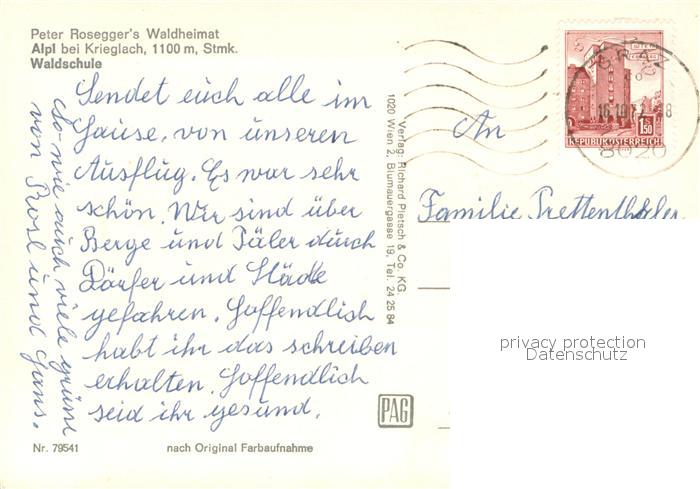 Peter Rosegger's Waldheimat
Alpl bei Krieglach, 1100 m, Stmk.
Waldschule
Sendet euch alle im
Hause, von unseren
Ausflug. Es war sehr
schön. Wir sind über
Berge und Täler durch
Dörfer und Städte
gefahren. Hoffendlich
habt ihr das schreiben
erhalten. Hoffendlich
seid ihr gesund.
So wie auch viele grüße
von Rosl und Hans.
Nr. 79541
nach Original Farbaufnahme
Verlag: Richard Pietsch & Co. KG.
1020 Wien 2, Blumauergasse 19, Tel. 24 25 84
PAG
GRAZ
16.10.72-18
8020
1.50
REPUBLIK ÖSTERREICH
An
Familie Prettenthaler
privacy protection
Datenschutz